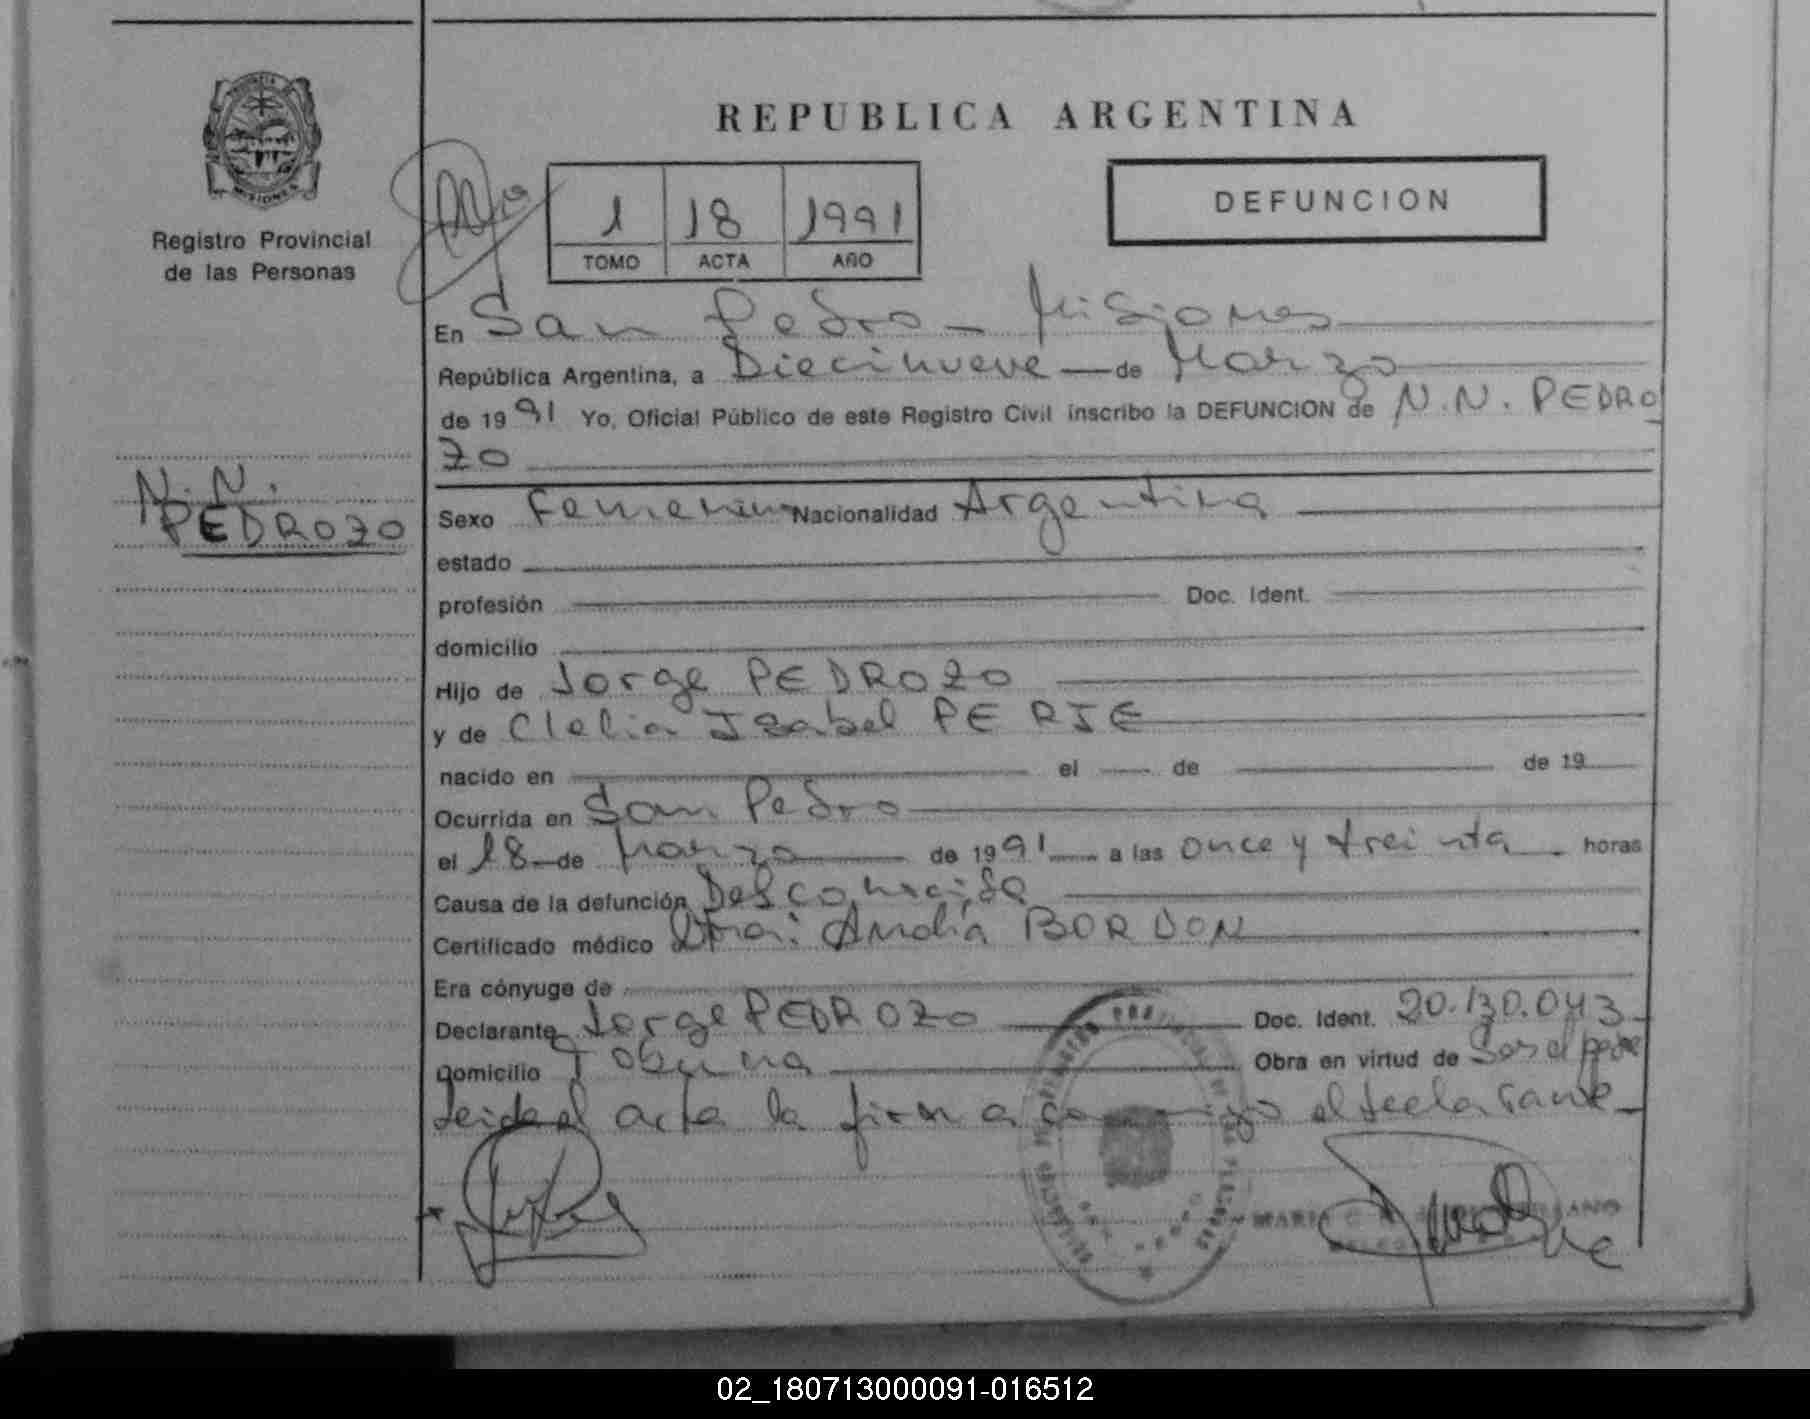 PROVINCIA
MISIONES
Registro Provincial
de las Personas
REPUBLICA ARGENTINA
1 18 1991
TOMO ACTA AÑO
DEFUNCION
En San Pedro - Misiones
República Argentina, a Diecinueve de Marzo
de 1991 Yo, Oficial Público de este Registro Civil inscribo la DEFUNCION de N.N. PEDRO
ZO
N.N.
PEDROZO
Sexo Femenino Nacionalidad Argentina
estado
profesión Doc. Ident.
domicilio
Hijo de Jorge PEDROZO
y de Clelia Isabel PERIE
nacido en el de de 19
Ocurrida en San Pedro
el 18 de Marzo de 1991 a las once y treinta horas
Causa de la defunción Desconocida
Certificado médico Dra: Analía BORDON
Era cónyuge de
Declarante Jorge PEDROZO Doc. Ident. 20.130.043
Domicilio Tobuna Obra en virtud de Ser el padre
Leida el acta la firma conmigo el declarante
02_180713000091-016512